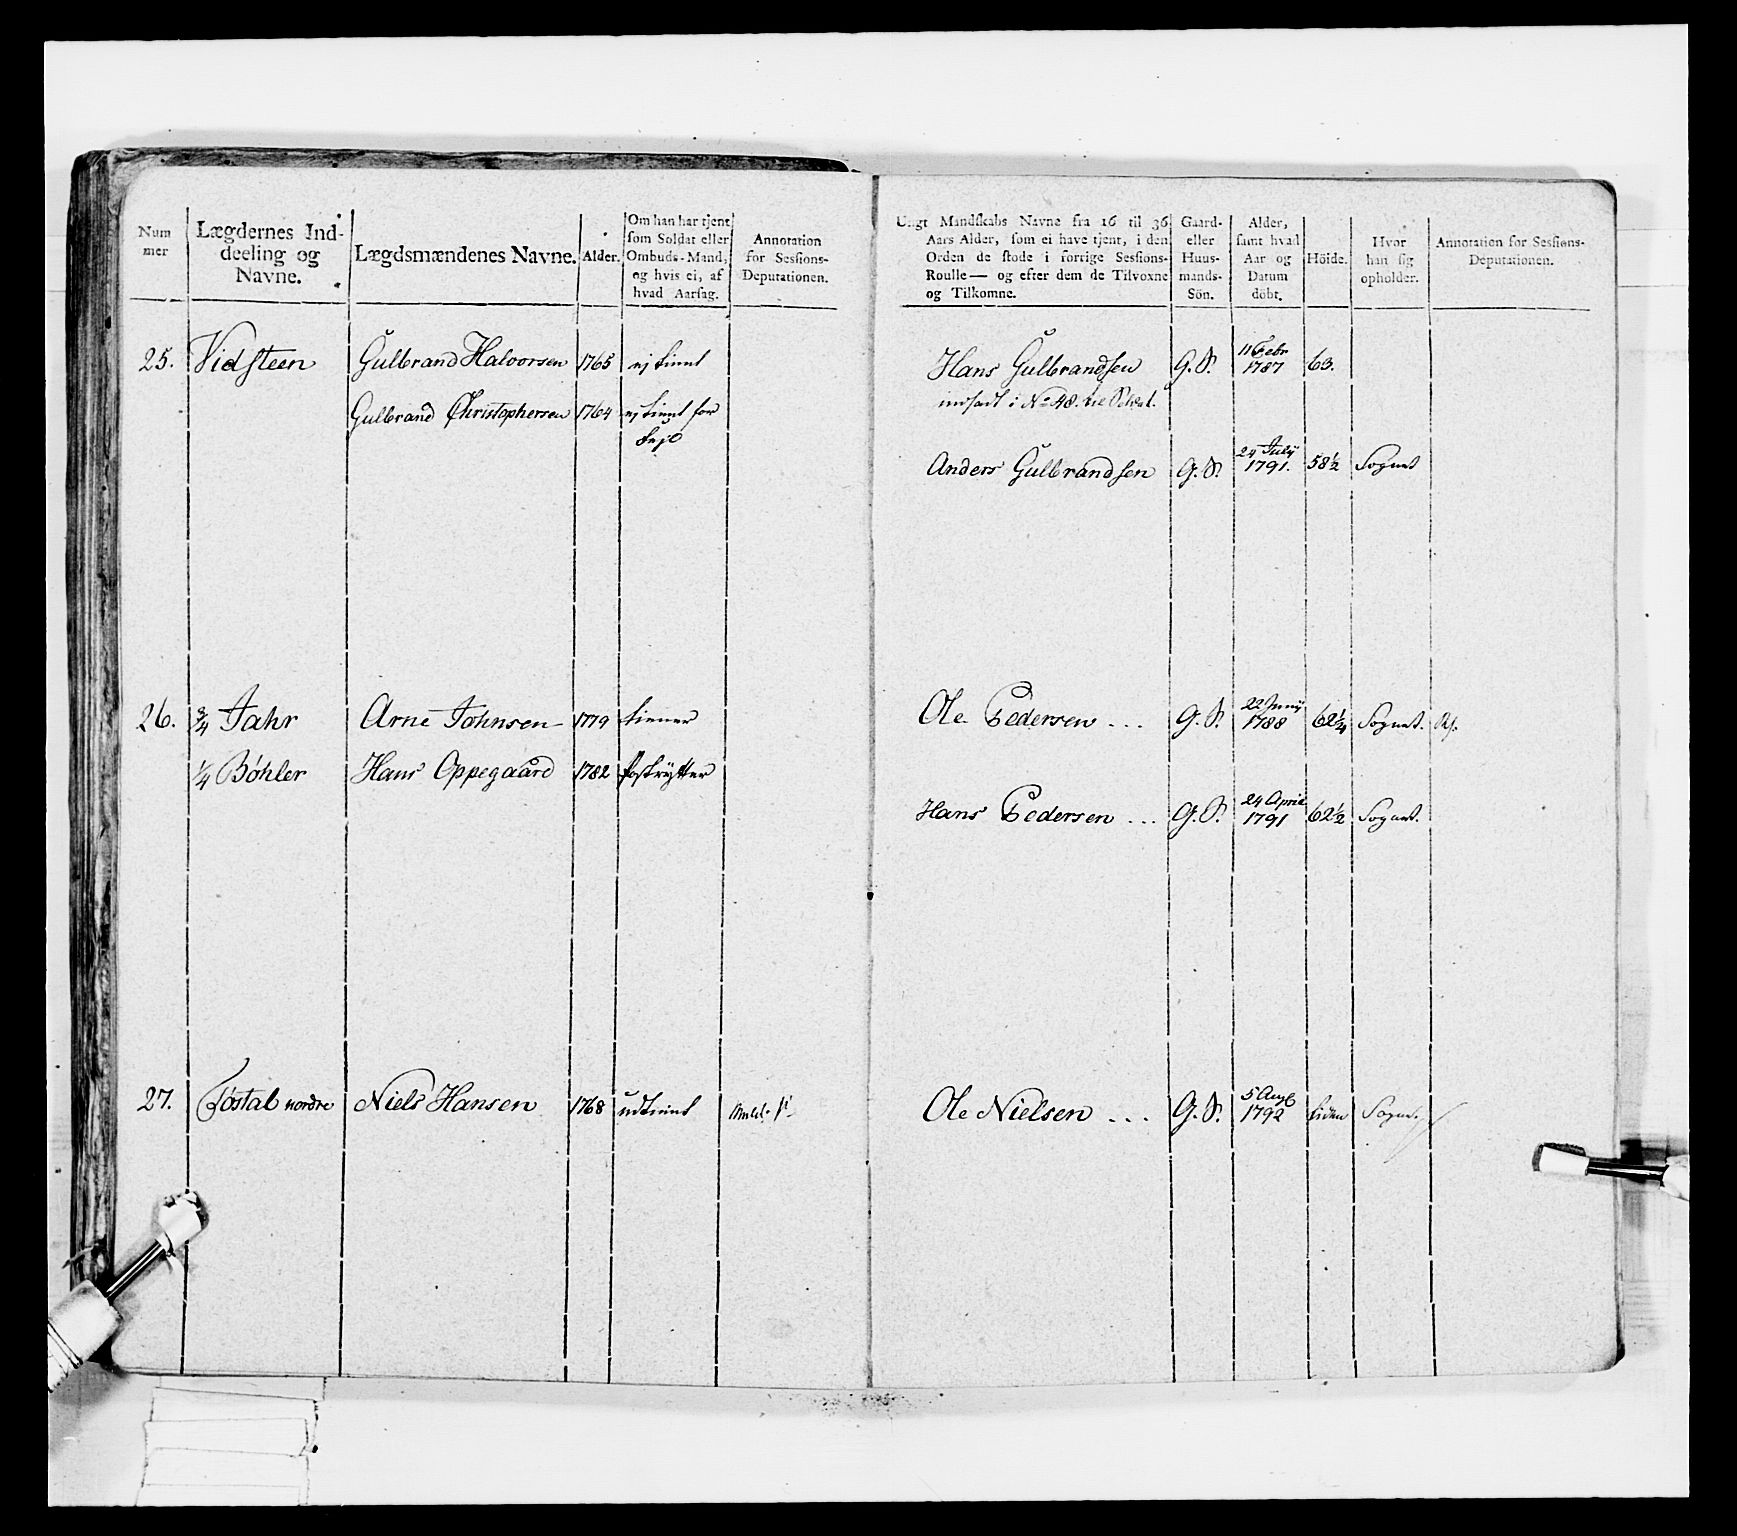 Num
mer
Lægdernes Ind-
deeling og
Navne.
Lægdsmændenes Navne.
Alder.
Om han har tjent
som Soldat eller
Ombuds-Mand,
og hvis ei, af
hvad Aarsag.
Annotation
for Sessions-
Deputationen.
Ungt Mandskabs Navne fra 16 til 36
Aars Alder, som ei have tjent, i den
Orden de stode i forrige Sessions-
Roulle — og efter dem de Tilvoxne
og Tilkomne.
Gaard-
eller
Huus-
mands-
Sön.
Alder,
samt hvad
Aar og
Datum
döbt.
Höide.
Hvor
han sig
opholder.
Annotation for Sessions-
Deputationen.
25. Vidsteen Gulbrand Halvorsen 1765 ej tient
Gulbrand Christophersen 1764 ej tient for
Hans Gulbrandsen G. S. 11 Febr 1787 63.
indsadt i No 48. til Soldat.
Anders Gulbrandsen G. S. 24 July 1791. 58½ Sognet
26. ¾ Jahr Arne Johnsen 1779 tiener
¼ Bøhler Hans Oppegaard 1782 Postrytter
Ole Pedersen ... G. S. 22 Juny 1788 62¼ Sognet.
Hans Pedersen ... G. S. 24 April 1791 62½ Sognet.
27. nordre Niels Hansen 1768 udtient
Ole Nielsen ... G. S. 5 Aug 1792 liden Sogn.